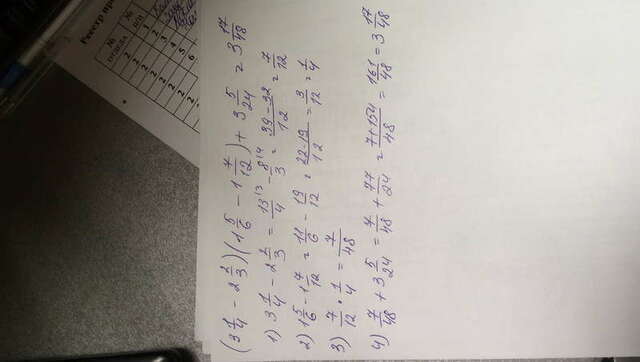 Реестр пр
№ отдела
№ п/п
2 1
2 2
2 3
2 4
2 5
2 6
(3 1/4 - 2 2/3)(1 5/6 - 1 7/12) + 3 5/24 = 3 17/48
1) 3 1/4 - 2 2/3 = 13/4 ^13 - 8/3 ^14 = 39-32/12 = 7/12
2) 1 5/6 - 1 7/12 = 11/6 - 19/12 = 22-19/12 = 3/12 = 1/4
3) 7/12 · 1/4 = 7/48
4) 7/48 + 3 5/24 = 7/48 + 77/24 = 7+154/48 = 161/48 = 3 17/48